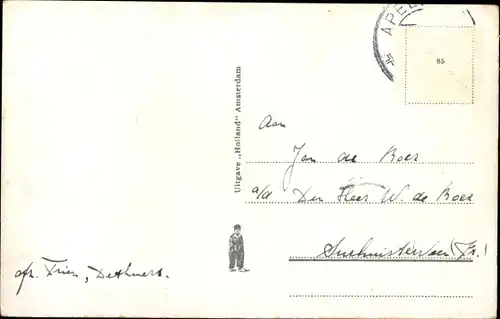 * APEL
85
Uitgave „Holland" Amsterdam
Aan
Jan de Boer
a/d Den Heer W. de Boer
Surhuisterveen (Fr.)
afz. Trien, Dethmers.